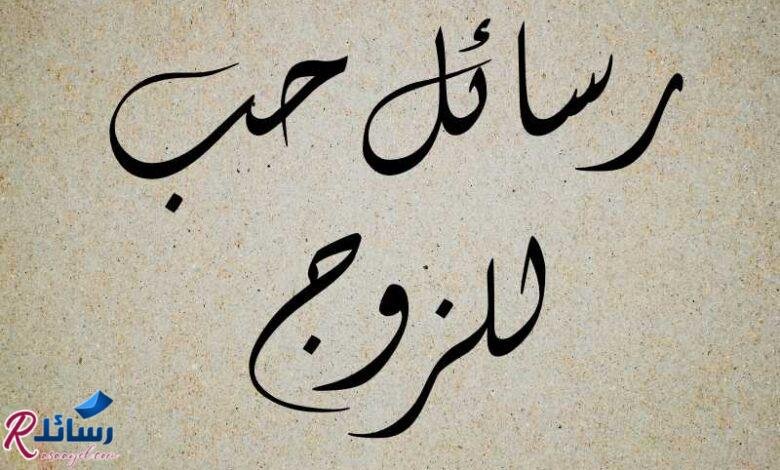 رسائل حب
للزوج
رسائل
Rasaayel.com